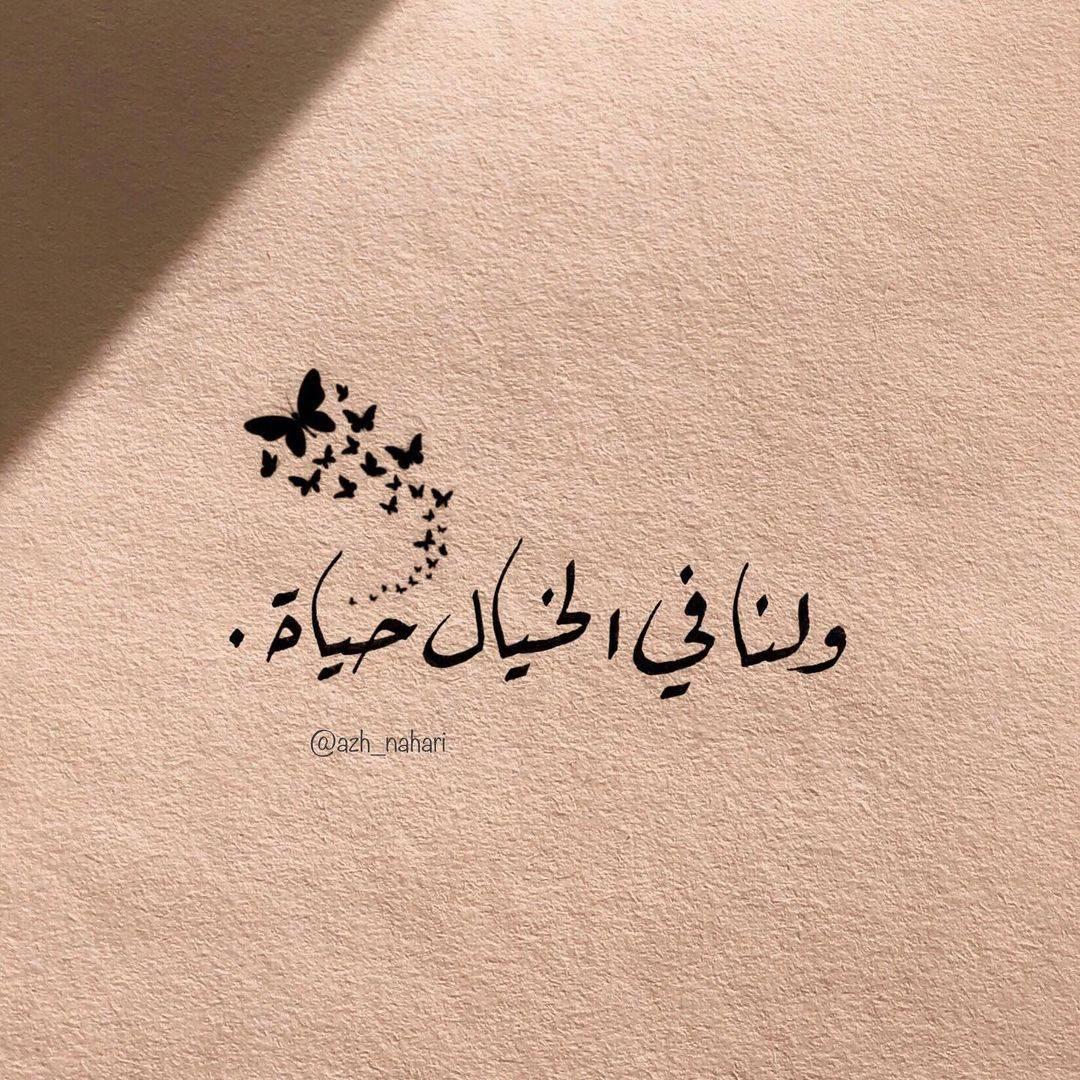 ولنا في الخيال حياة .
@azh_nahari